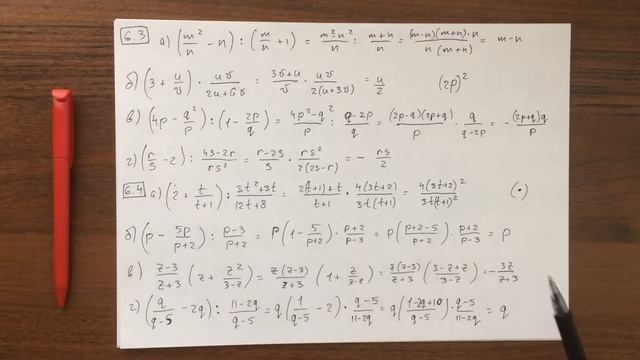 6.3 а) (m²/n - n) : (m/n + 1) = (m²-n²)/n : (m+n)/n = (m-n)(m+n)·n / n(m+n) = m-n
б) (3 + u/v) · uv/(2u+6v) = (3v+u)/v · uv/2(u+3v) = u/2 (2p)²
в) (4p - q²/p) : (1 - 2p/q) = (4p²-q²)/p : (q-2p)/q = (2p-q)(2p+q)/p · q/(q-2p) = - (2p+q)q/p
г) (r/s - 2) : (4s-2r)/rs² = (r-2s)/s · rs²/2(2s-r) = - rs/2
6.4 а) (2 + t/(t+1)) : (3t²+3t)/(12t+8) = (2(t+1)+t)/(t+1) · 4(3t+2)/3t(t+1) = 4(3t+2)²/3t(t+1)² (·)
б) (p - 5p/(p+2)) : (p-3)/(p+2) = p(1 - 5/(p+2)) · (p+2)/(p-3) = p((p+2-5)/(p+2)) · (p+2)/(p-3) = p
в) (z-3)/(z+3) (z + z²/(3-z)) = z(z-3)/(z+3) (1 + z/(3-z)) = z(z-3)/(z+3) ((3-z+z)/(3-z)) = - 3z/(z+3)
г) (q/(q-5) - 2q) : (11-2q)/(q-5) = q(1/(q-5) - 2) · (q-5)/(11-2q) = q((1-2q+10)/(q-5)) · (q-5)/(11-2q) = q